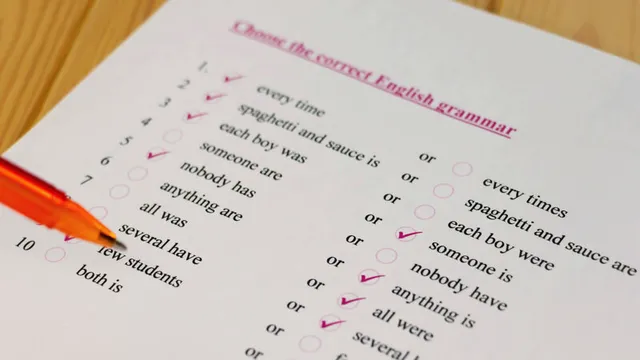 Choose the correct English grammar
1. every time or every times
2 spaghetti and sauce is or spaghetti and sauce are
3 each boy was or each boy were
4 someone are or someone is
5 nobody has or nobody have
6 anything are or anything is
7 all was or all were
several have or several
few students or
10 both is